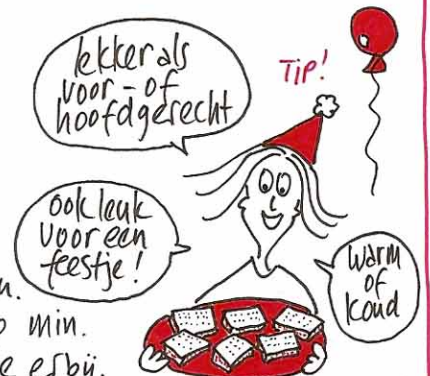 lekker als
voor- of
hoofdgerecht
TIP!
ook leuk
voor een
feestje!
warm
of
koud
min.
erbij.